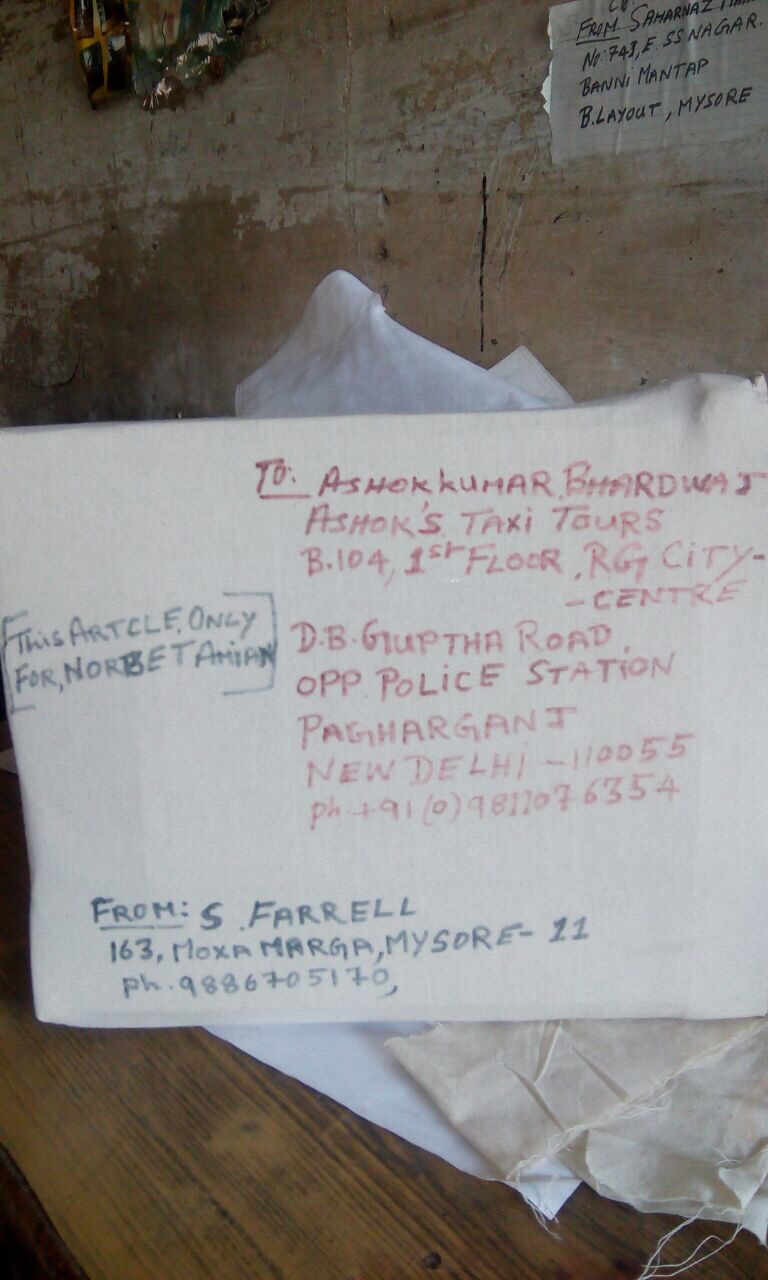 FROM SAHARNAZ
No: 743, E. SS NAGAR.
BANNI MANTAP
B. LAYOUT, MYSORE
TO: ASHOK KUMAR BHARDWAJ
ASHOK'S TAXI TOURS
B.104, 1ST FLOOR, RG CITY-
-CENTRE
D.B. GUPTHA ROAD,
OPP POLICE STATION
PAGHARGANJ
NEW DELHI -110055
ph +91(0)9811076354
[This ARTCLE, ONLY
FOR, NORBET AMIAN]
FROM: S. FARRELL
163, MOXA MARGA, MYSORE- 11
ph. 9886705170,